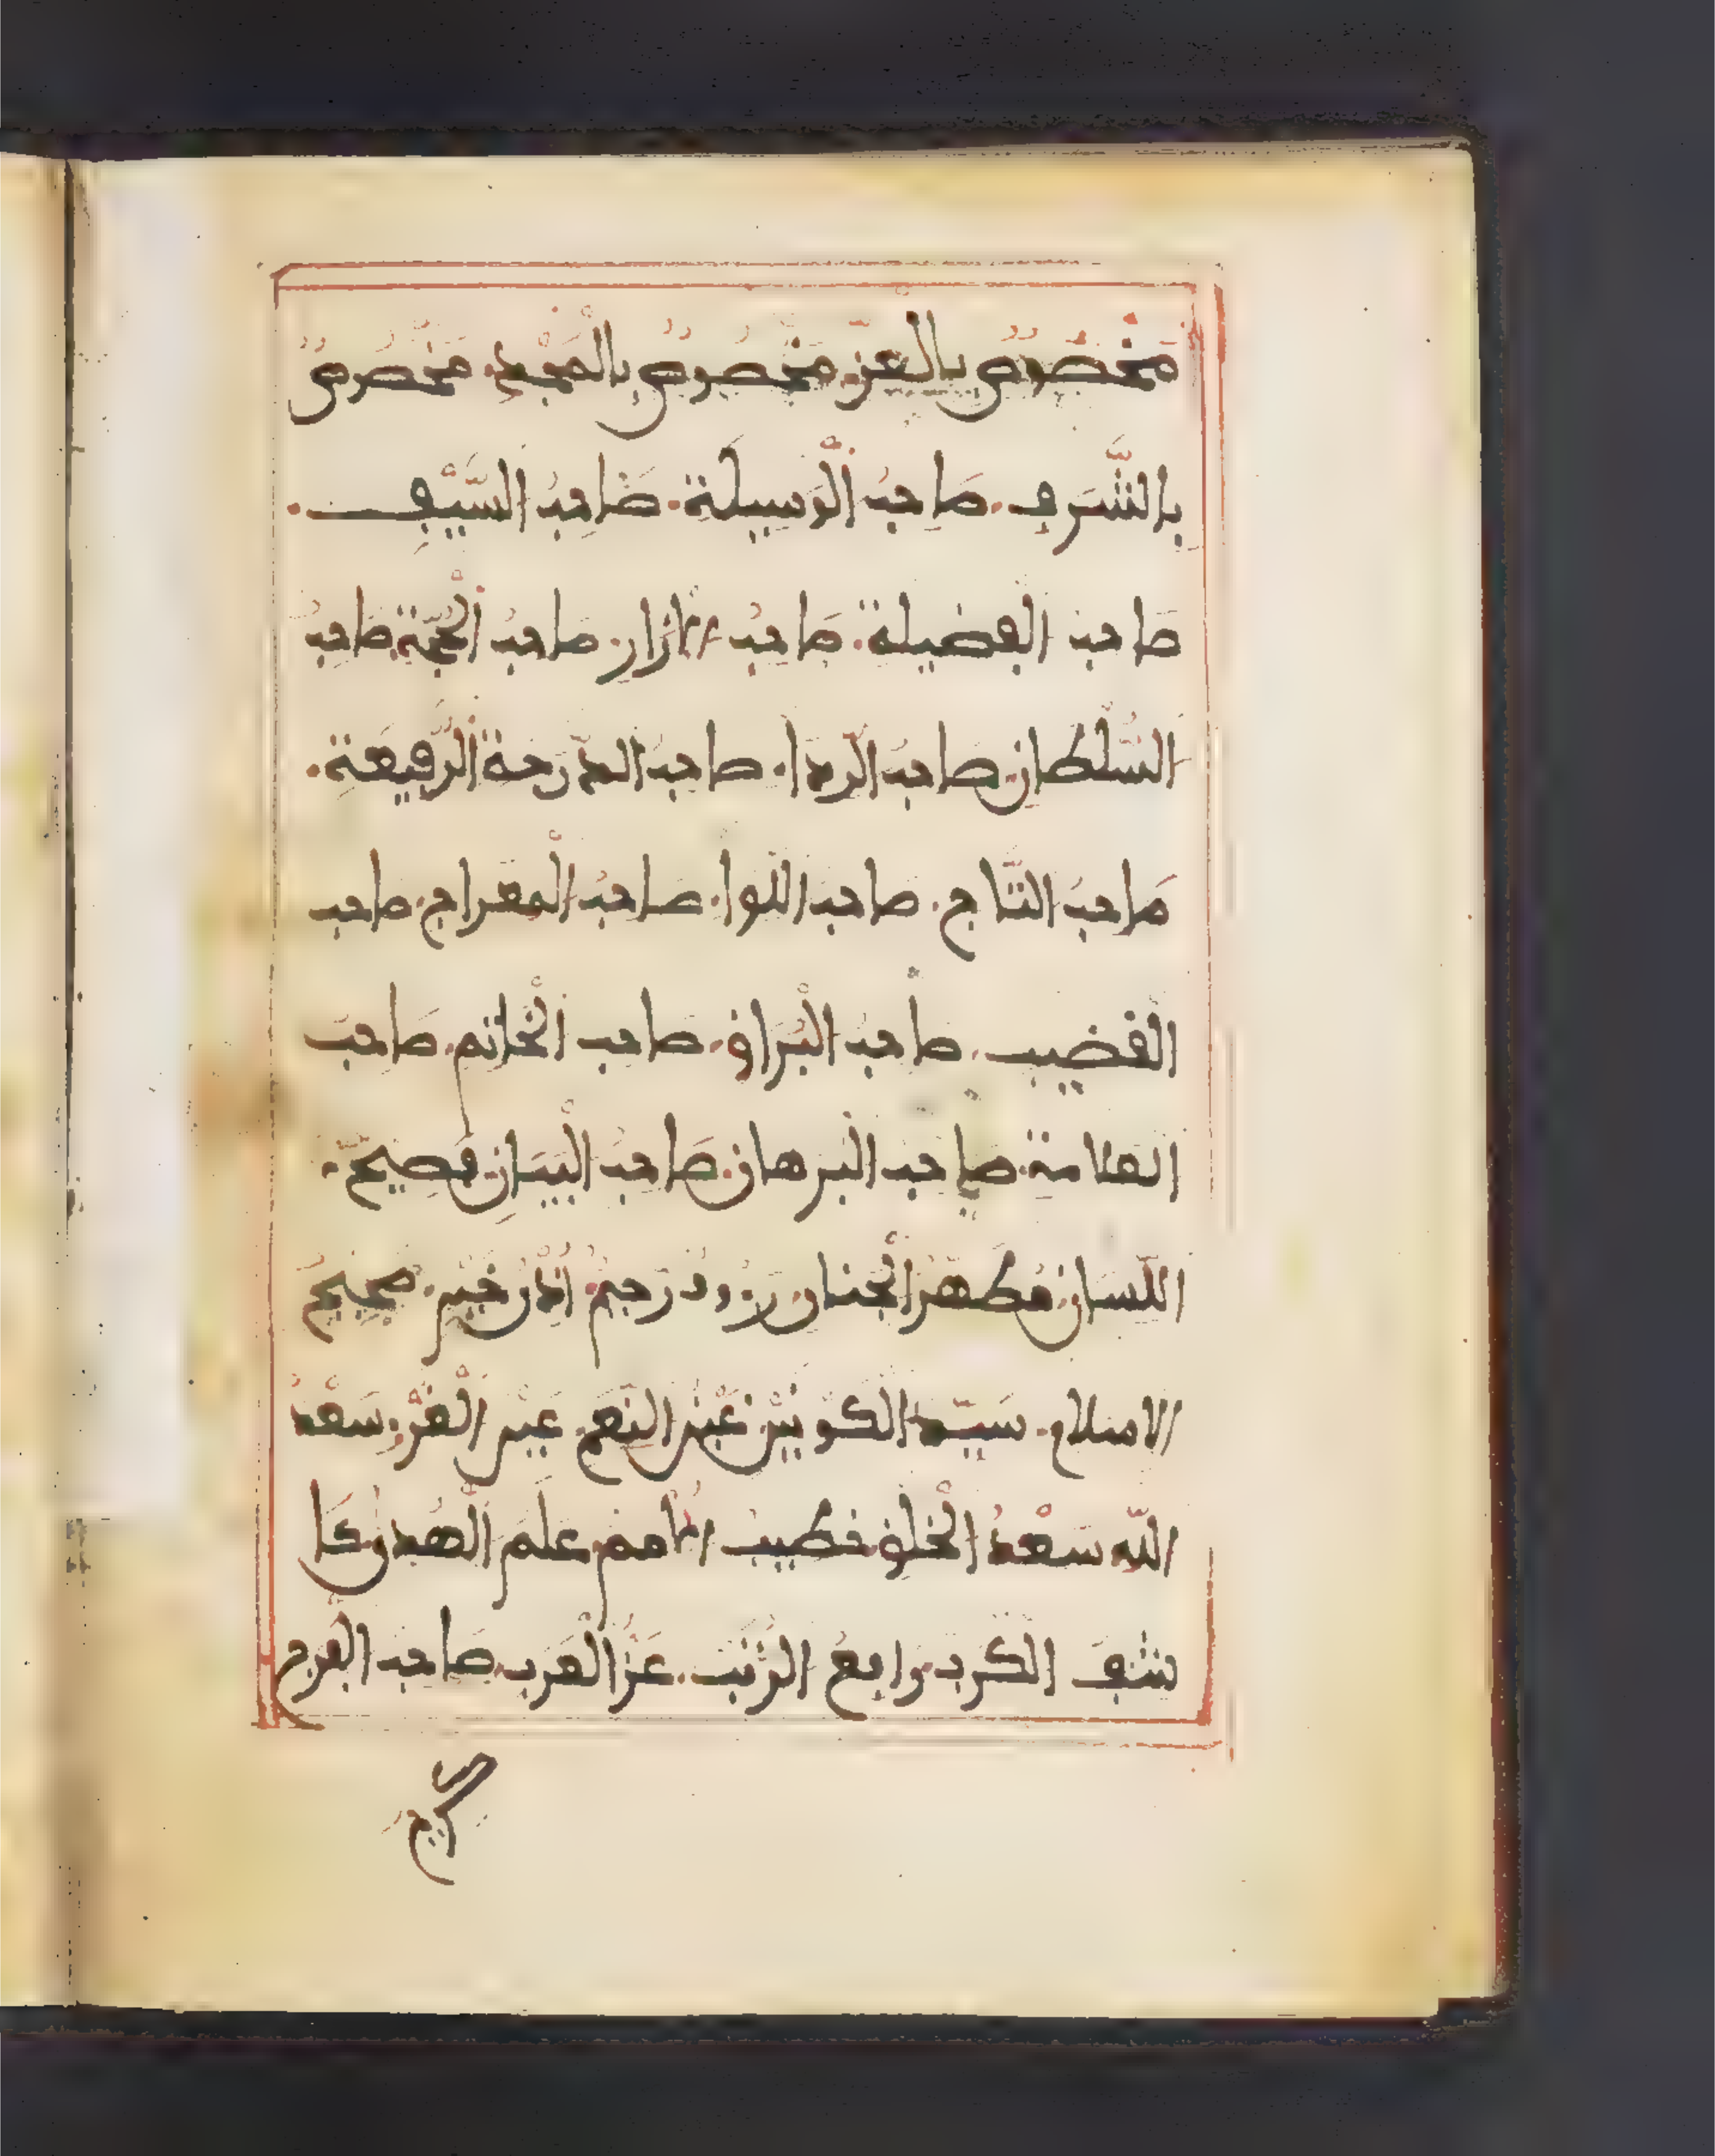 مَخْصُوصٌ بِالْعِزِّ. مَخْصُوصٌ بِالْمَجْدِ. مَخْصُوصٌ
بِالشَّرَفِ. صَاحِبُ الْوَسِيلَةِ. صَاحِبُ السَّيْفِ.
صَاحِبُ الْفَضِيلَةِ. صَاحِبُ الازَارِ. صَاحِبُ الْحُجَّةِ. صَاحِبُ
السُّلْطَانِ. صَاحِبُ الرِّدَا. صَاحِبُ الدَّرَجَةِ الرَّفِيعَةِ.
صَاحِبُ التَّاجِ. صَاحِبُ اللِّوَا. صَاحِبُ الْمِعْرَاجِ. صَاحِبُ
الْقَضِيبِ. صَاحِبُ الْبُرَاقِ. صَاحِبُ الْخَاتَمِ. صَاحِبُ
الْعَلَامَةِ. صَاحِبُ الْبُرْهَانِ. صَاحِبُ الْبَيَانِ. فَصِيحُ.
اللِّسَانِ. مُطَهَّرُ الْجَنَانِ. رَءُوفٌ رَحِيمٌ. أُذُنُ خَيْرٍ. صَحِيحُ
الاسْلَامِ. سَيِّدُ الْكَوْنَيْنِ. عَيْنُ النَّعِيمِ. عَيْنُ الْغُرِّ. سَعْدُ
اللَّهِ. سَعْدُ الْخَلْقِ. خَطِيبُ الامَمِ. عَلَمُ الْهُدَى. كَا
شِفُ الْكُرَبِ. رَافِعُ الرُّتَبِ. عِزُّ الْعَرَبِ. صَاحِبُ الْفَرَجِ
كريم